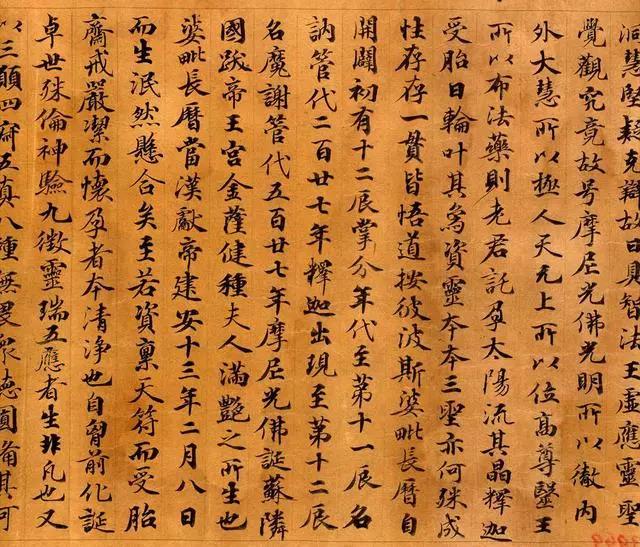 洞慧堅疑克辯故曰具智法王虛應靈聖
覺觀究竟故号摩尼光佛光明所以徹內
外大慧所以極人天无上所以位高尊毉王
所以布法藥則老君託孕太陽流其晶釋迦
受胎日輪叶其為資靈本本三聖亦何殊成
性存存一貫皆悟道按彼波斯婆毗長曆自
開闢初有十二辰掌分年代至第十一辰名
訥管代二百廿七年釋迦出現至第十二辰
名魔謝管代五百廿七年摩尼光佛誕蘇隣
國跋帝王宮金薩健種夫人滿艷之所生也
婆毗長曆當漢獻帝建安十三年二月八日
而生泯然懸合矣至若資稟天符而受胎
齋戒嚴潔而懷孕者本清淨也自胷前化誕
卓世殊倫神驗九徵靈瑞五應者生非凡也又
以三願四寂五真八種無畏衆德圓備其可